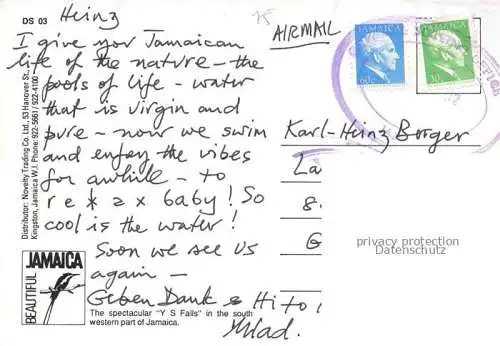 DS 03
Heinz
AIRMAIL
I give you Jamaican
life of the nature - the
pools of life - water
that is virgin and
pure - now we swim
and enjoy the vibes
for awhile - to
relax baby! So
cool is the water!
Soon we see us
again -
Geben Dank & Hi to
Mlad.
JAMAICA
60c
JAMAICA
Karl-Heinz Borger
La
8
G
privacy protection
Datenschutz
Distributor: Novelty Trading Co. Ltd., 53 Hanover St.,
Kingston, Jamaica W.I. Phone: 922-5661 / 922-4100
BEAUTIFUL
JAMAICA
The spectacular "Y S Falls" in the south
western part of Jamaica.